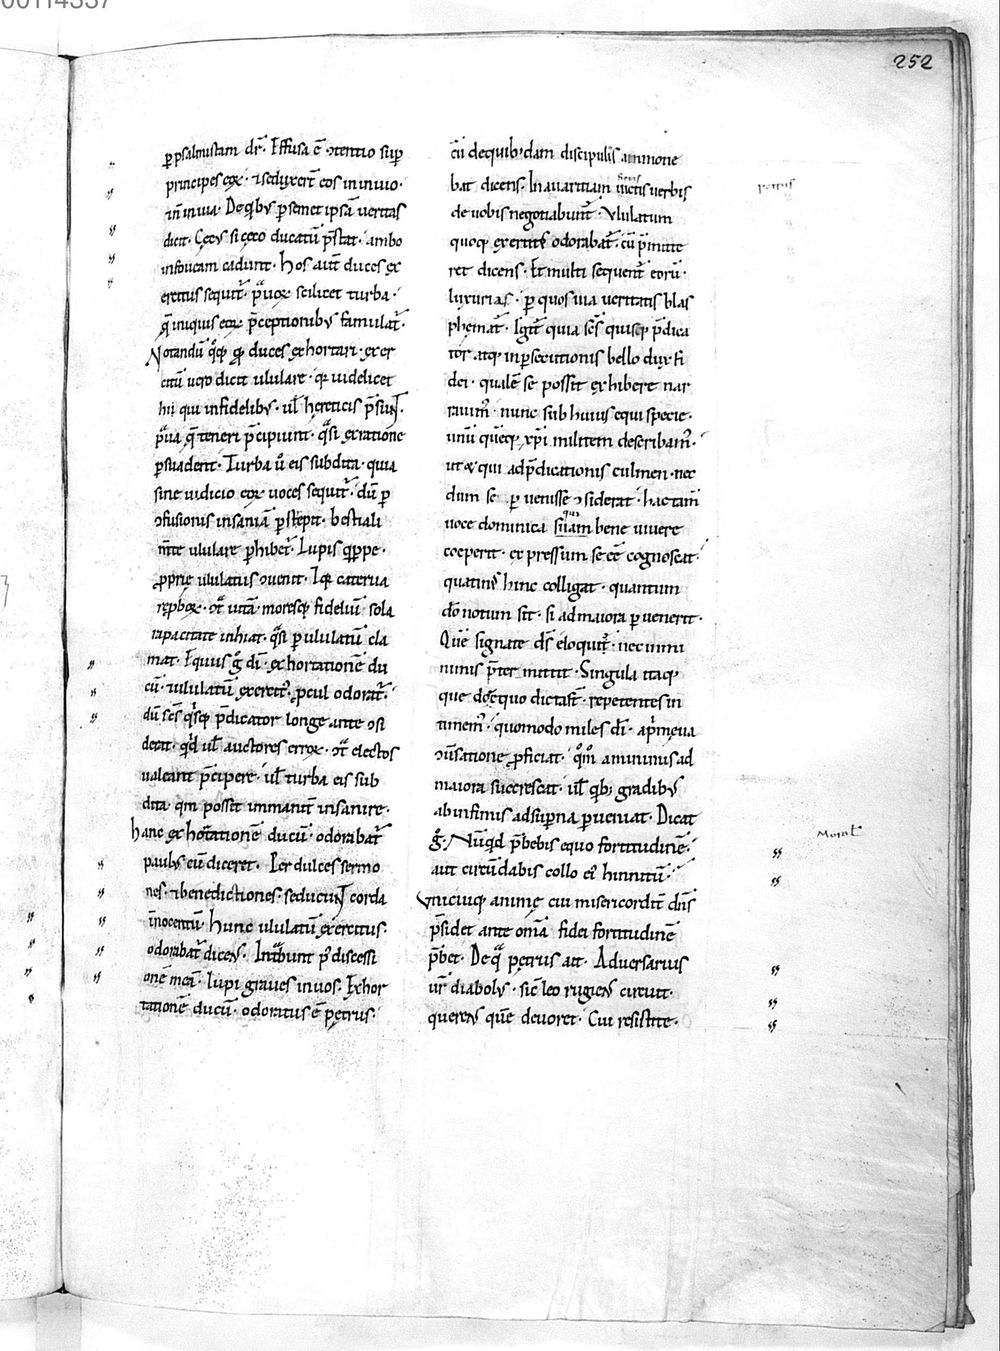 00114337
252
ꝑpsalmistam dr̄. Effusa ē ꝯtentio suꝑ
principes eoꝝ· ⁊ seduxer̄t eos in inuio·
⁊ ñ in uia· De qibꝰ ꝑ semet ipsā ueritas
dicit. Cęcꝰ si cęco ducatū p̄stat· ambo
in foueam cadunt· hos aut̄ duces ex
ercitus sequit᷑· p̄uoꝝ scilicet turba·
q̄ iniquis eoꝝ p̄ceptionibꝰ famulat᷑·
Notandū qͦꝙ ꝙ duces exhortari· exer
citū uero dicit ululare· qꝛ uidelicet
hii qui infidelibꝰ· ul̄ hereticis p̄sunt·
p̄ua q̄ teneri p̄cipiunt· qͣsi ex ratione
ꝑsuadent· Turba ū eis subdita· quia
sine iudicio eoꝝ uoces sequit᷑· dū ꝑ
ꝯfusionis insaniā ꝑstrepit· bestiali
m̄te ululare ꝑhibet᷑· Lupis qͥppe·
ꝓprie ululatus ꝯuenit· Iqꝛ caterua
reꝓboꝝ· ꝯt̄ uitā· moresqꝫ fideliū sola
rapacitate inhiat· qͣsi ꝑ ululatū cla
mat· Equus gͦ dī· exhortationē du
cū· ⁊ ululatū exercitꝰ· ꝓcul odorat᷑·
dū sc̄s qͥsqꝫ p̄dicator longe ante ꝯsi
derat· qͥd ul̄ auctores erroꝝ· ꝯt̄ electos
ualeant p̄cipere· ul̄ turba eis sub
dita· qm possit immanit̄ insanire·
hanc exhortationē ducū· odorabat᷑
paulꝰ cū diceret· Per dulces sermo
nes· ⁊ benedictiones· seducunt corda
īnocentū· hunc ululatū exercitus·
odorabat᷑ dicens· Intrabunt pꝰ discessi
onē meā· lupi graues in uos· Exhor
tationē ducū· odoratus ē petrus·
cū de quibꝰdam discipulis ammone
bat dicens· In auaritiam fictis uerbis
de uobis negotiabunt᷑· Vlulatum
quoqꝫ exercitꝰ odorabat᷑· cū p̄mitte
ret dicens· Et multi sequent᷑ eorū·
luxurias· ꝑ quos uia ueritatis blas
phemat᷑· Igit᷑ quia sc̄s quisqꝫ p̄dica
tor· atqꝫ in ꝑsecutionis bello dux fi
dei· qualē se possit exhibere nar
rauim᷒· nunc sub huius equi specie·
unū quēqꝫ xp̄i militem describam᷒·
ut ⁊ qui ad p̄dicationis culmen· nec
dum se ꝑuenisse ꝯsiderat· hac tam̄
uoce dominica bene uiuere
coeperit· expressum se eē cognoscat·
quatin᷒ hinc colligat· quantum
dō notum sit· si ad maiora ꝑuenerit·
Quē signate dn̄s eloquit᷑· nec mini
nimis p̄ter mittit· Singula itaqꝫ
que de equo dicta st̄· repetentes in
timem᷒· quomodo miles dī· a p̄meua
ꝯūsatione ꝓficiat· qͦmͦ a minimis ad
maiora succrescat· ul̄ qͥbꝫ gradibꝰ
ab infimis ad suꝑna ꝑueniat· Dicat
gͦ· Nūqͥd p̄bebis equo fortitudinē·
aut circūdabis collo eiꝰ hinnitū·
Vnicuiqꝫ animę cui misericordit᷑ dn̄s
p̄sidet ante om̄ia fidei fortitudinē
p̄bet· De qͣ petrus ait· Aduersarius
ur̄ diabolꝰ· sic̄ leo rugiens circuit·
querens quē deuoret· Cui resistite·
petrus
Moral̄